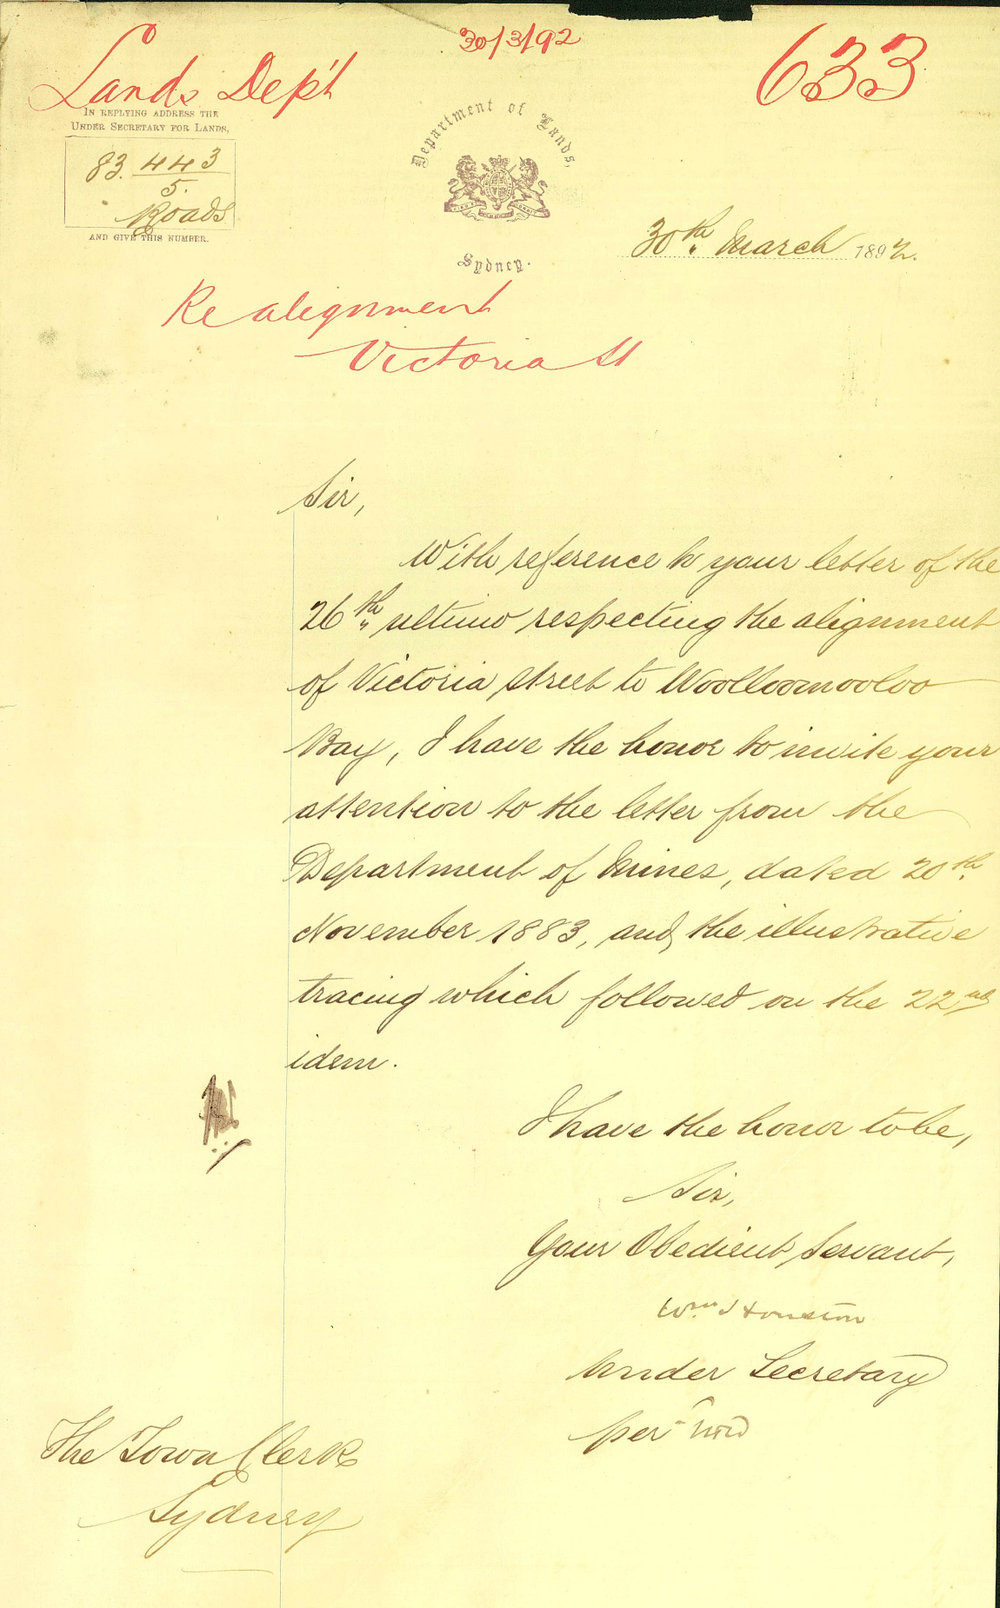 30/3/92
633
Lands Dep't
IN REPLYING ADDRESS THE
UNDER SECRETARY FOR LANDS,
83. 443
5.
Roads
AND GIVE THIS NUMBER.
Department of Lands,
Sydney.
30th March 1892.
Re alignment
Victoria St
Sir,
With reference to your letter of the
26th ultimo respecting the alignment
of Victoria street to Woolloomooloo
Bay, I have the honor to invite your
attention to the letter from the
Department of Mines, dated 20th
November 1883, and the illustrative
tracing which followed on the 22nd
idem.
I have the honor to be,
Sir,
Your Obedient Servant,
Wm Houston
Under Secretary
per
The Town Clerk
Sydney